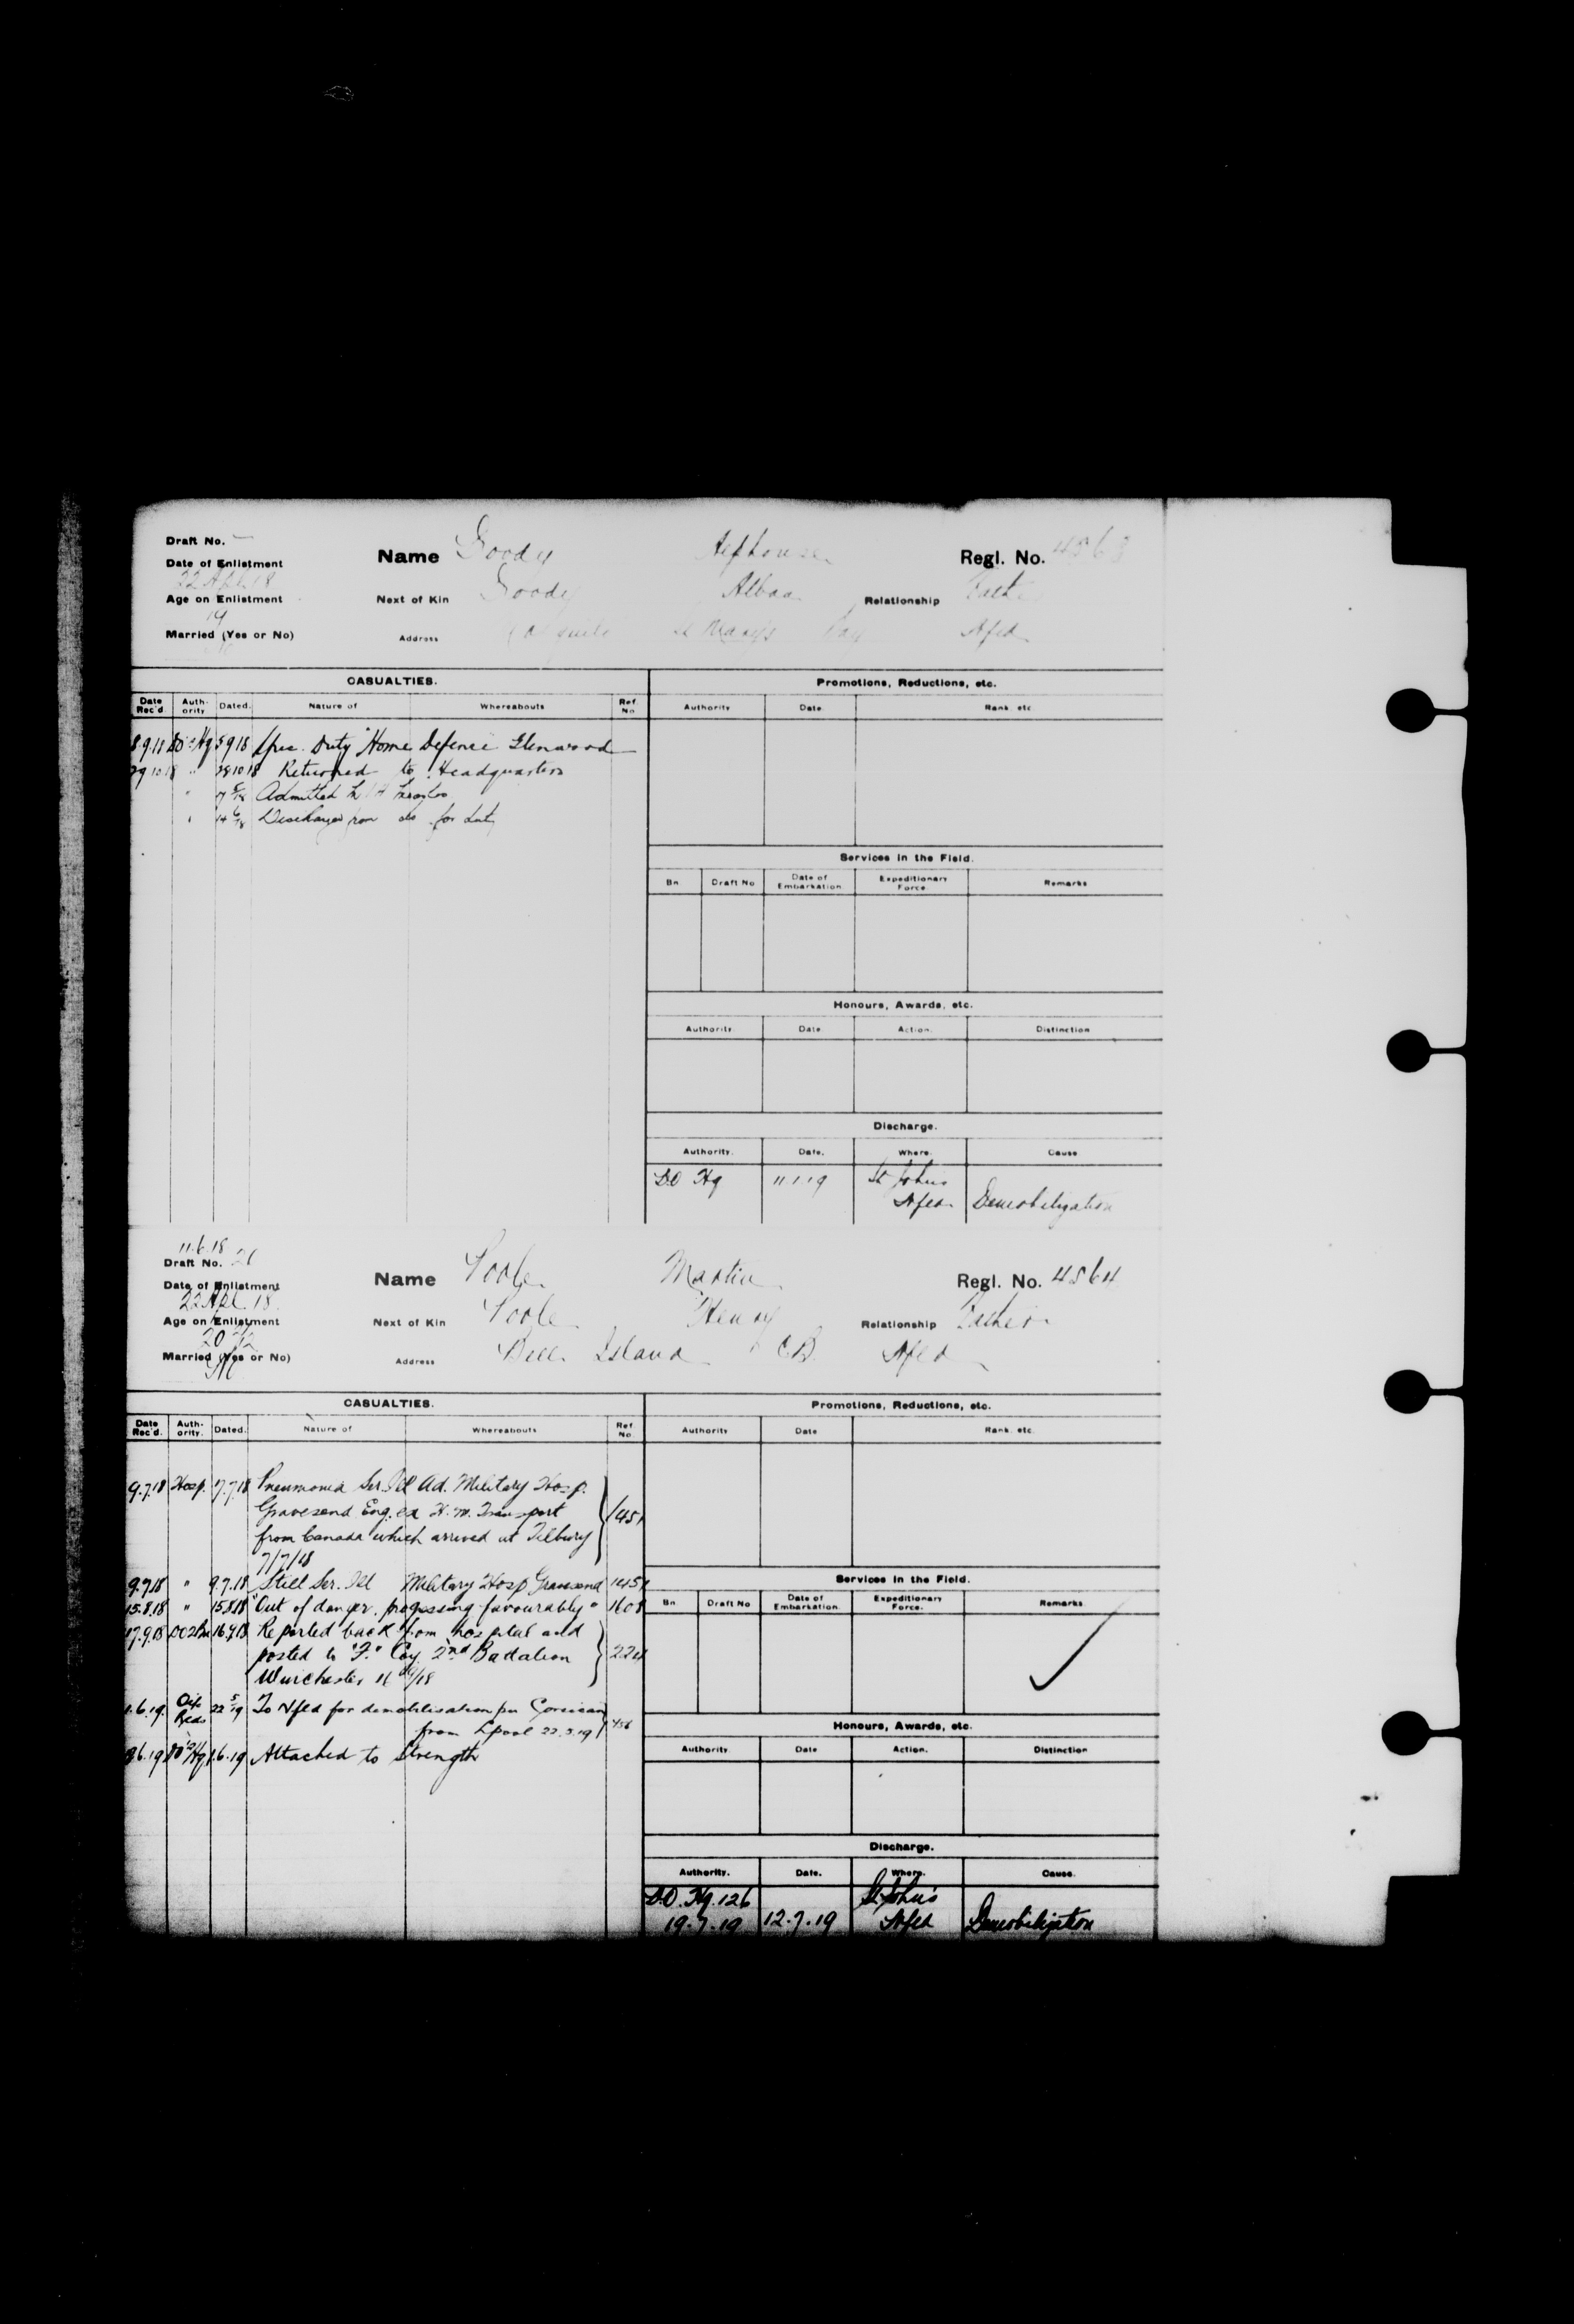 Draft No. —
Date of Enlistment
22 Apl 18
Age on Enlistment
19
Married (Yes or No)
No
Name Goody Alphonse Regl. No. 4563
Next of Kin Goody Alban Relationship Father
Address St Mary's Bay Nfld
CASUALTIES.
Date Rec'd Auth-ority Dated. Nature of Whereabouts Ref. No
8.9.18 DO Hq 5 9 18 Spec. Duty Home Defence Glenwood
29 10 18 " 28 10 18 Returned to Headquarters
" Admitted
" 14 6/18 Discharged from do for duty
Promotions, Reductions, etc.
Authority Date Rank, etc
Services in the Field.
Bn Draft No Date of Embarkation Expeditionary Force Remarks
Honours, Awards, etc.
Authority Date Action. Distinction
Discharge.
Authority. Date. Where. Cause
D.O Hq 11 1 19 St Johns Nfld Demobilization
11.6.18
Draft No. 26
Date of Enlistment
22 Apl. 18.
Age on Enlistment
Married (Yes or No)
No
Name Poole Martin Regl. No. 4564
Next of Kin Poole Henry Relationship Father
Address Bell Island C.B. Nfld
CASUALTIES.
Date Rec'd. Auth-ority. Dated. Nature of Whereabouts Ref. No
9.7.18 Hosp. 7.7.18 Pneumonia Ser. Ill Ad. Military Hosp.
Gravesend Eng. ex H.M. Transport
from Canada which arrived at Tilbury
7/7/18
9.7.18 " 9.7.18 Still Ser. Ill Military Hosp Gravesend
15.8.18 " 15.8.18 "Out of danger. progessing favourably" 1608
17.9.18 Reported back from hospital and
posted to "F." Coy. 2nd Battalion
Winchester
22 5/19 To Nfld for demobilisation per Corsican
from Lpool
Attached to Strength
Promotions, Reductions, etc.
Authority Date Rank, etc.
Services in the Field.
Bn. Draft No Date of Embarkation. Expeditionary Force. Remarks
Honours, Awards, etc.
Authority Date Action. Distinction
Discharge.
Authority. Date. Where. Cause.
D.O. Hq. 126 St. John's
19.7.19 12.7.19 Nfld Demobilization